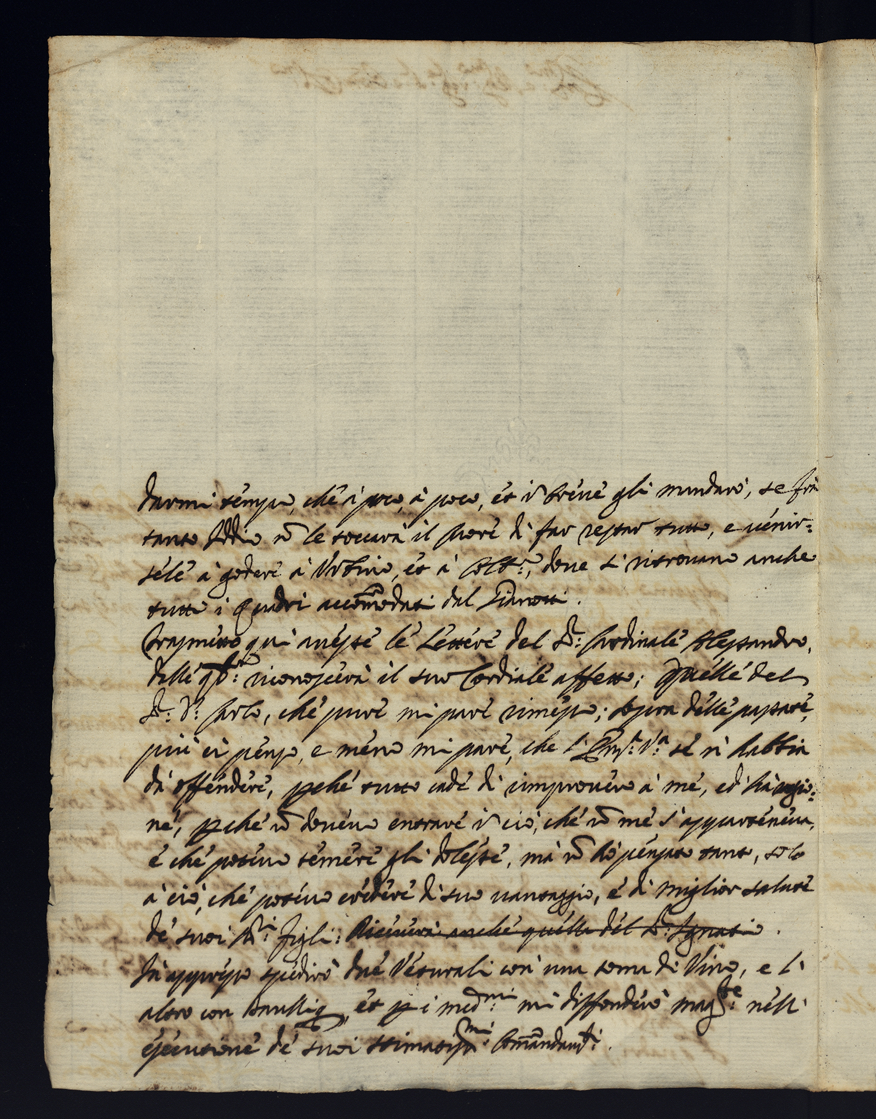 darmi tempo, che à poco, à poco, et in breve gli mandarò, se frà
tanto Iddio nō le toccarà il Core di far restar tutto, e venir=
sele à godere à Urbino, et à dove si ritrovano anche
tutti i Quadri accōmodati dal
Trasmetto qui annesse le Lettere del Sr: Cardinale Alessandro,
dalle riconoscerà il suo Cordiale affetto; Quelle del
Sr: Dn: Carlo, che pure mi pare rimesso; sopra delle passate,
più ci penso, e meno mi pare, che l' se n' habbia
dà offendere, pche tutto cade di rimprovero à me, ed hà ragio=
ne, pche nō dovevo entrare in ciò, che nō me s'apparteneva,
e che potevo temere gli dolesse, mà nō hò pensato tanto, solo
à ciò, che potevo credere di suo vantaggio, e di miglior salute
de suoi Sri: figli: Riceverà anche quella del Sr: Ignatio.
In appresso spedirò due Vetturali con una soma di Vino, e l'
altro con et p i medmi: mi diffonderò magte: nell'
esecutione de' suoi stimatissmi: Comandanti:.